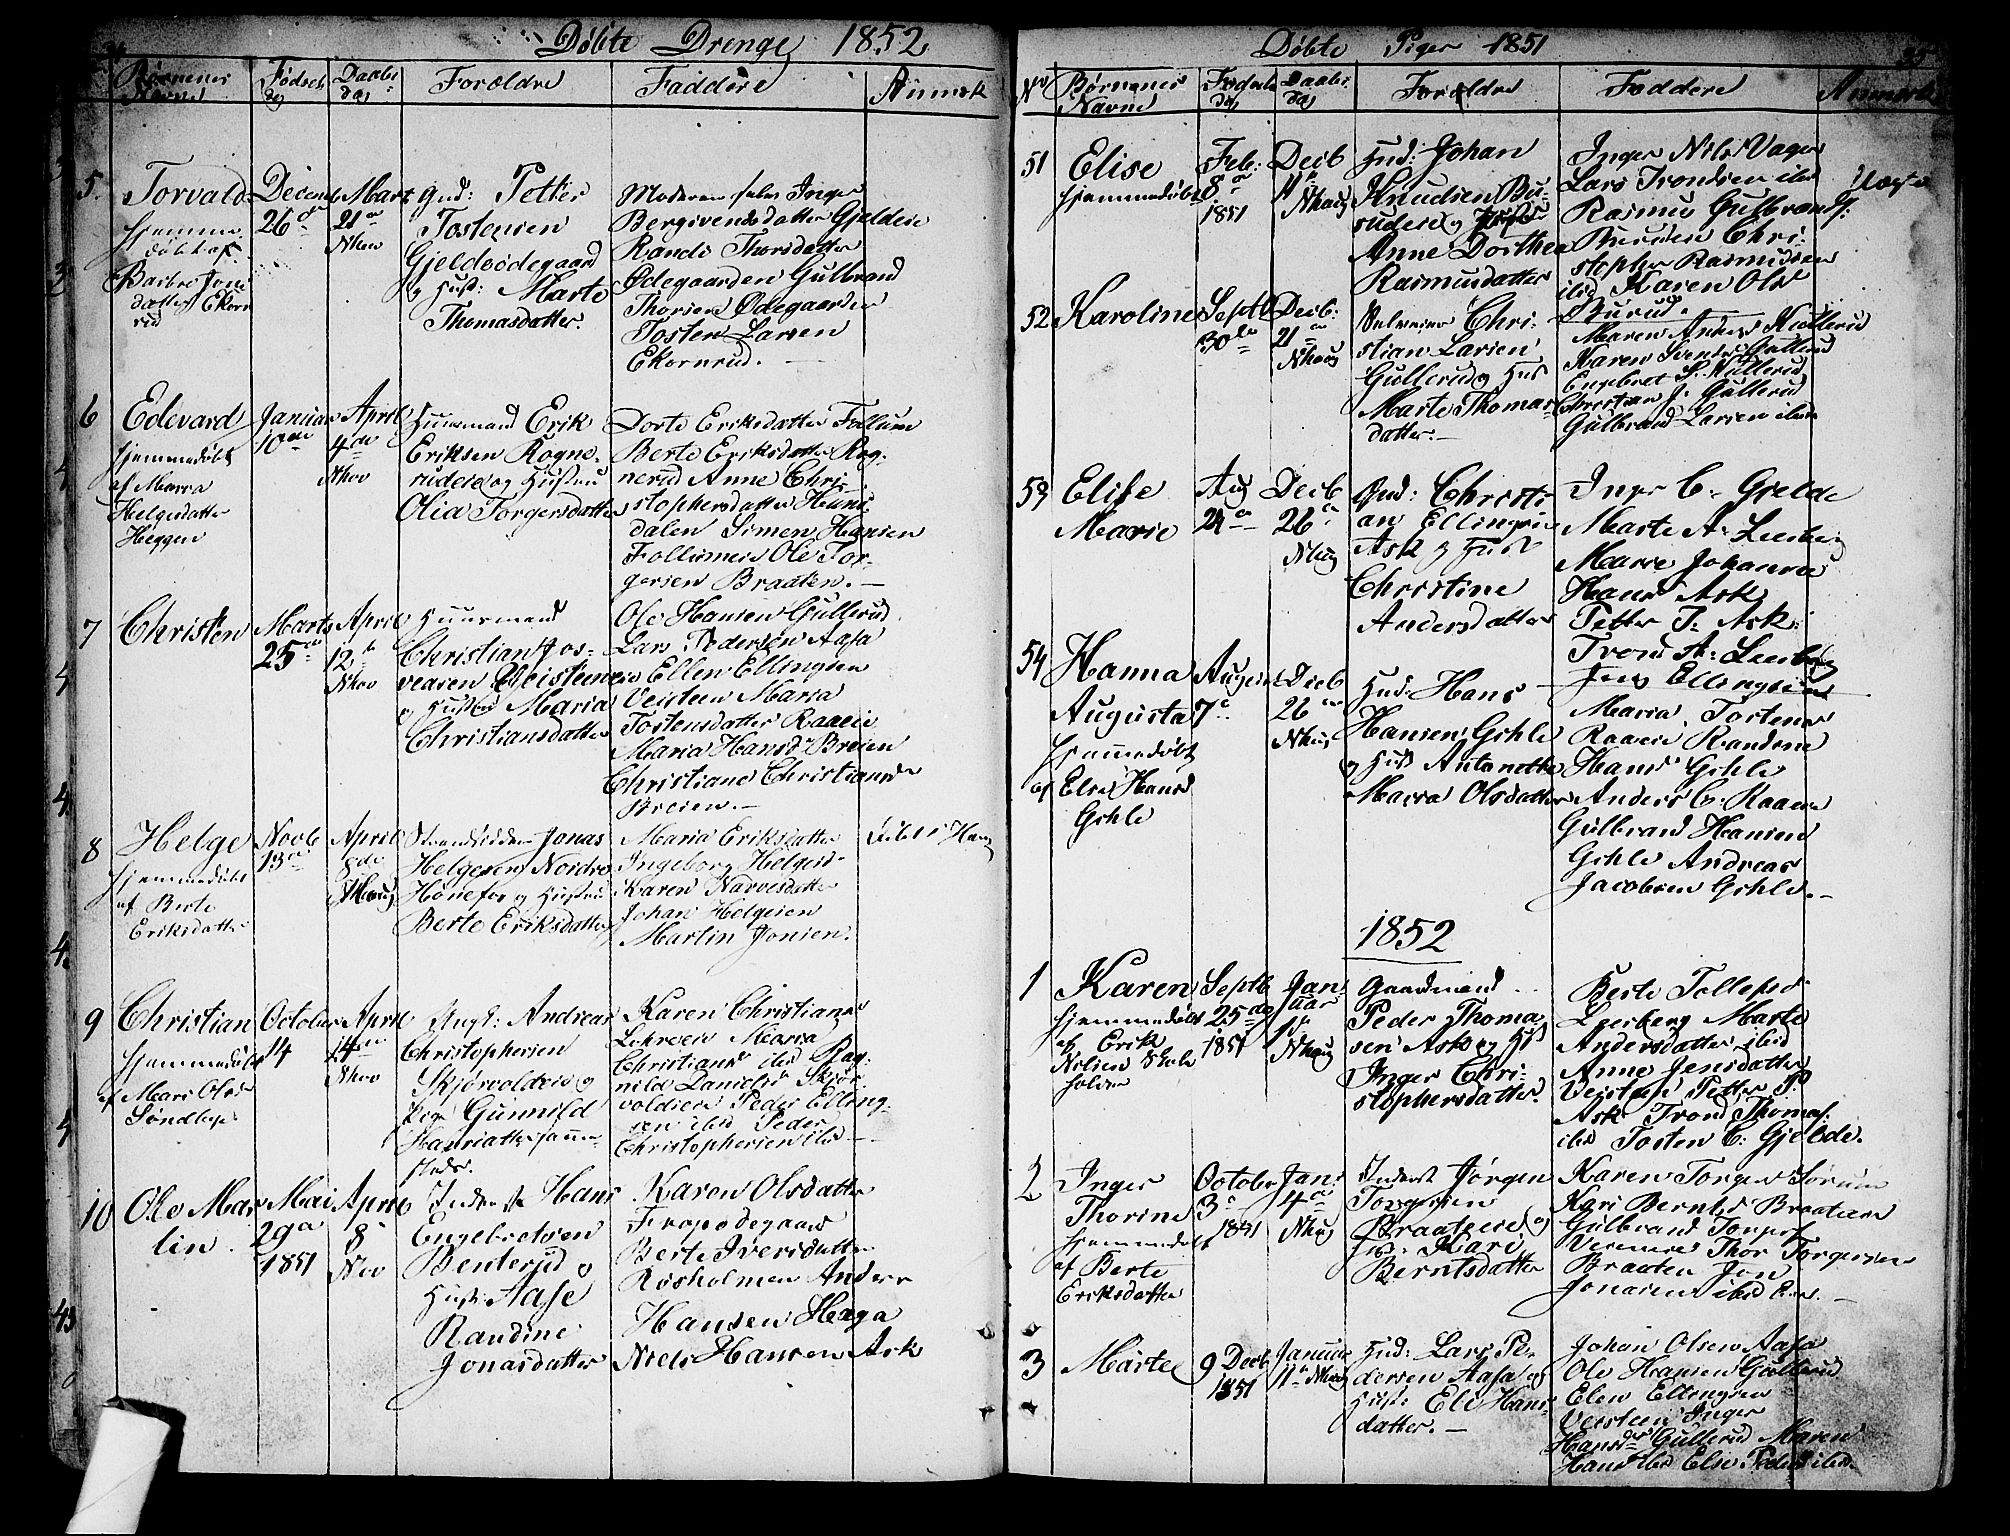 Døbte Drenge 1852
Børnenes Navne
Fødsels dag
Daabs dag
Forældre
Faddere
Anmærk
5.
Torvald
hjemme
døbt af
Barbro Jons
datter Ekorn
rud
Decemb
26de
Mart
21de
Nhov
Gmd: Petter
Tostensen
Gjeldsødegaard
og Hust: Marte
Thomasdatter.
Moderen selv Inger
Bergivendsdatter Gjeldeie
Randi Thorsdatter
Ødegaarden Gulbrand
Thorsen Ødegaarden
Tosten Larsen
Ekornrud.
6
Edevard
hjemmedøbt
af Maria
Helgesdatter
Heggen
Januar
10de
April
4de
Nhov
Huusmand Erik
Eriksen Rogne-
rudeie og Hustru
Olia Torgersdatter
Dorte Eriksdatter Follum
Berte Eriksdatter Rog-
nerud Anne Chri-
stophersdatter Hens
dalen Simen Hansen
Follumeie Ole Tor-
gersen Braaten.
7
Christen
Marts
25de
April
12te
Nhov
Huusmand
Christian Hos-
vearen Veisteeneie
og Hustru Maria
Christiansdatter
Ole Hansen Gullerud
Lars Pedersen Aasa
Ellen Ellingsen
Veisteen Maria
Tostensdatter Raaeie
Maria Hansdr Breien
Christiane Christiansdr
Breien.
8
Helge
hjemmedøbt
af Berte
Eriksdatter
Novb
13de
April
8de
NHoug
Strandsidder Jonas
Helgesen Nordre
Hønefos og Hustru
Berte Eriksdatter
Maria Eriksdatter
Ingeborg Helgesd
Karen Narvesdatter
Johan Helgesen
Martin Jonsen.
9
Christian
hjemmedøbt
af Mari Olsdr
Søndbye
October
14
April
14de
Nhov
Ungk: Andreas
Christophersen
Skjørvoldeie og
Pige Gunnild
Hansdatter samme-
steds.
Karen Christians
Lehreeie Maria
Christiansd ibid Rag-
nild Danielsd Skjør
voldeie Peder Elling-
sen ibid Peder
Christophersen ibd
10
Ole Mar
tin.
Mai
29de
1851
April
8
Nov
Inderst Hans
Engebretsen
Benterud og
Hust: Aase
Randine
Jonasdatter
Karen Olsdatter
Frogødegaard
Berte Iversdatter
Rosholmen Anders
Hansen Haga
Niels Hansen Ask
Døbte Piger 1851
35
No
Børnenes Navne
Fødsels dag
Daabs dag
Forældre
Faddere
Anmærk
51
Elise
hjemmedøbt
Feb:
8de
1851
Decb
11te
Nhaug
Hmd: Johan
Knudsen Bu-
rudeie og Hust
Anne Dorthea
Rasmusdatter
Inger Nils Vager
Lars Trondsen ibd
Rasmus Gulbrands:
Burudeie Chri-
stopher Rasmusen
ibid Karen Ols
Burud.
52
Karoline
Septb
30de
Decb:
21de
Nhaug
Selveier Chri-
stian Larsen
Gullerud og Hust
Marte Thomas
datter.
Maren Anders Kullerud
Karen Svends Gullerud
Engebret S. Kullerud
Christian J. Gullerud
Gulbrand Larsen ibm
53
Elise
Marie
Aug
24de
Decb
26de
Nhaug
Gmd: Christi
an Ellingsen
Ask og Hust
Christine
Andersdatter
Inger C. Gjelde
Marte A. Leeberg
Marie Johanna
Hans Ask
Petter J. Ask
Trond A. Leeberg
Jens Ellingsen
54
Hanna
Augusta
hjemmedøbt
af Else Hansd
Gihle
August
7de
Decb
26de
Nhaug
Hmd: Hans
Hansen Gihle
og Hust Antonette
Maria Olsdatter
Maria Tostens
Raaeie Randine
Hansd Gihle
Anders C. Raaeie
Gulbrand Hansen
Gihle Andreas
Jacobsen Gihle.
1852
1
Karen
hjemmedøbt
af Erik
Nilsen Skole
holder
Septb
25de
1851
Jan
uar
1ste
Nhaug
Gaardmand
Peder Thoma
sen Ask og Hust
Inger Chri-
stophersdatter.
Berte Tollefsd
Leerberg Marte
Andersdatter ibid
Anne Jensdatter
Veisteen Petter P.
Ask Trond Thomas:
ibid Tosten C. Gjelde.
2
Inger
Thorine
hjemmedøbt
af Berte
Eriksdatter
October
3de
1851
Jan:
4de
Nhaug
Inderst Jørgen
Torgersen
Braateneie og
Hust: Kari
Berntsdatter
Karen Torgers Sørum
Kari Bernts Braaten
Gulbrand Torgers
Vesmeie Thor Torgersen
Braaten Jon
Jonasen ibid
3
Marte
9 Decb
1851
Januar
11te Nhaug
Hmd: Lars Pe-
dersen Aasa og
Hust: Eli Hans
datter.
Johan Olsen Aasa
Ole Hansen Gullerud
Elen Ellingsen
Veisteen Inger
Hansdr Gullerud Maren
Hans ibid Else Pedersd ibid.